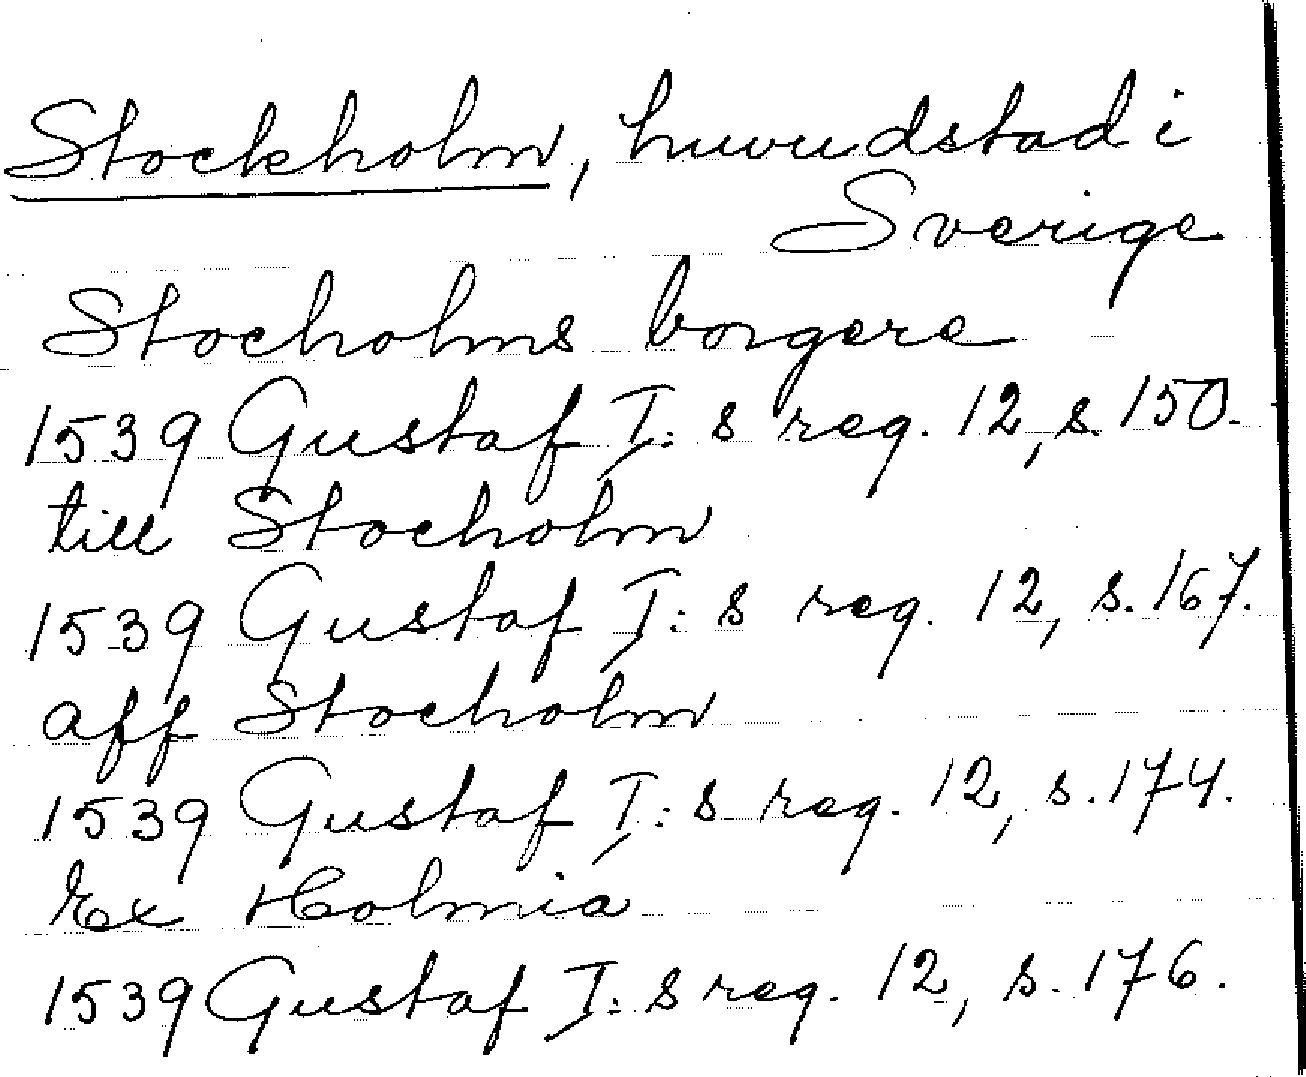 Stockholm, huvudstad i
Sverige
Stocholms borgere
1539 Gustaf I:s reg. 12, s. 150.
till Stocholm
1539 Gustaf I:s reg. 12, s. 167.
aff Stocholm
1539 Gustaf I:s reg. 12, s. 174.
Ex Holmia
1539 Gustaf I:s reg. 12, s. 176.